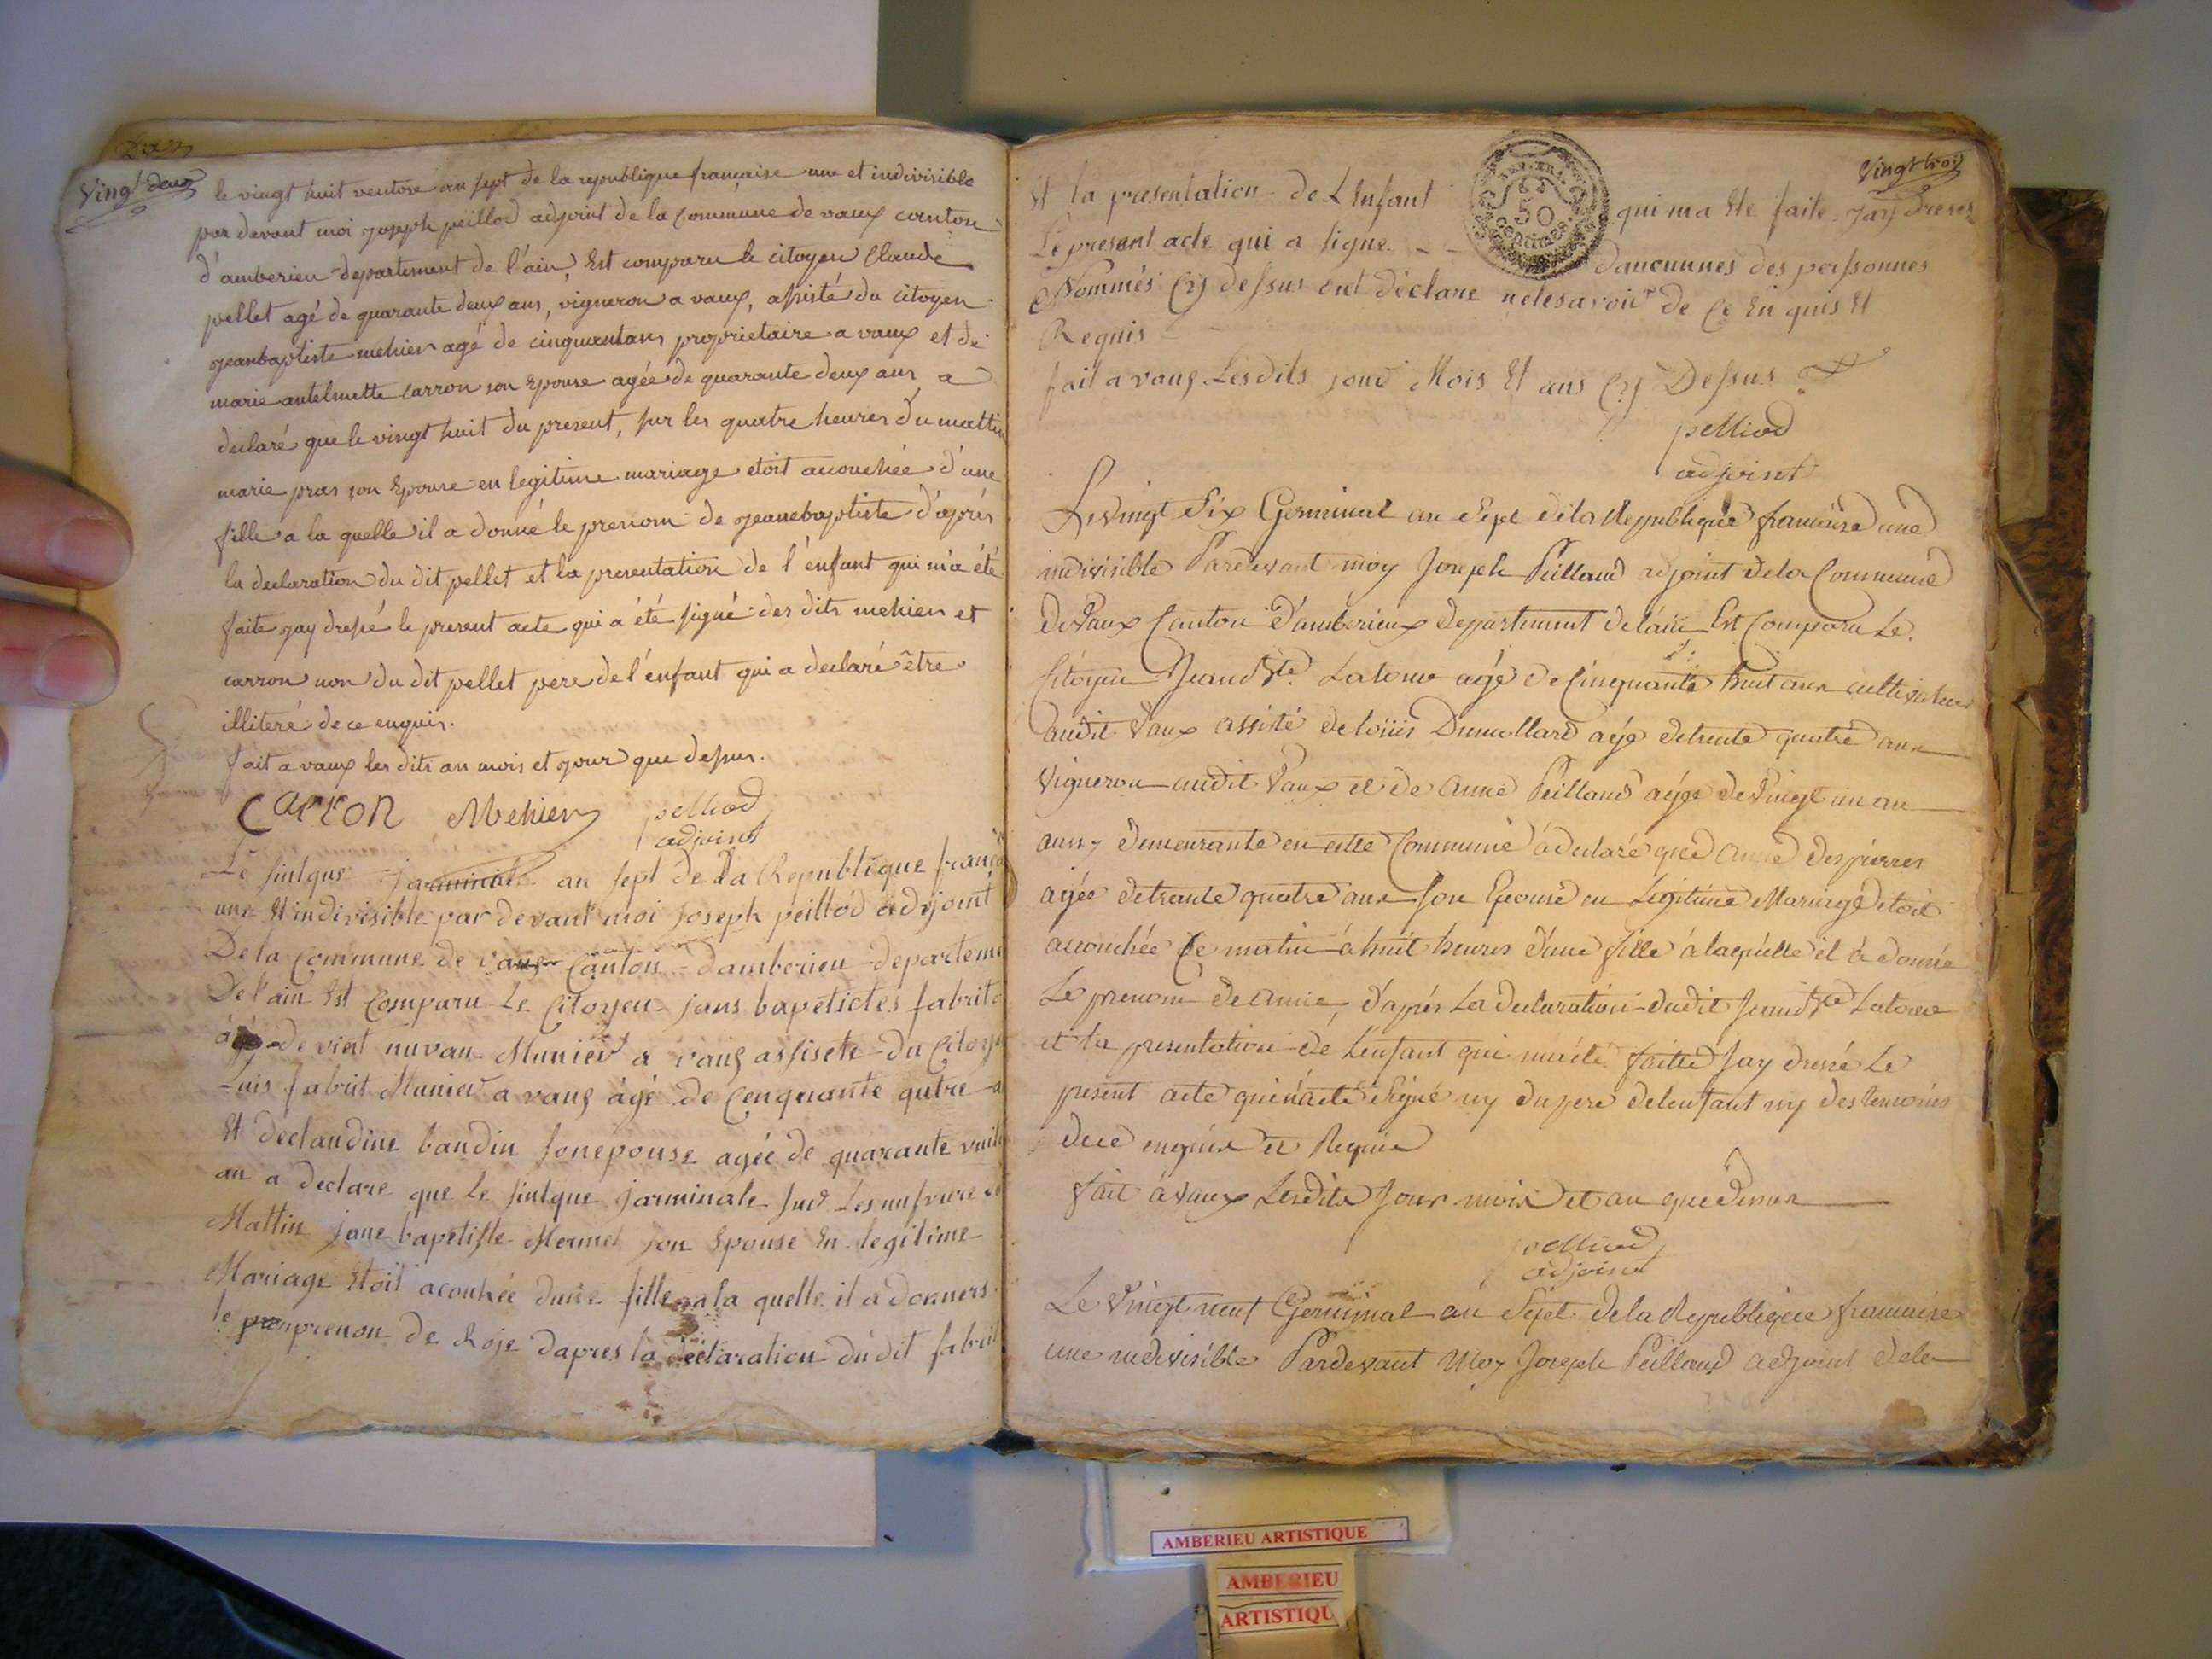 Vingt deux
le vingt huit ventose an sept de la republique française une et indivisible
par devant moi joseph peillod adjoint de la commune de vaux canton
d'amberieu departement de l'ain, Est comparu le citoyen Claude
pellet agé de quarante deux ans, vigneron a vaux, assisté du citoyen
jeanbaptiste mehier agé de cinquantans proprietaire a vaux et de
marie antelmette carron son epouse agée de quarante deux ans, a
declaré que le vingt huit du present, sur les quatre heures du mattin
marie pras son epouse en legitime mariage etoit accouchée d'une
fille a la quelle il a donné le prenom de jeanebaptiste d'après
la declaration du dit pellet et la presentation de l'enfant qui m'a été
faite jay dressé le present acte qui a été signé des dits mehier et
carron non du dit pellet pere de l'enfant qui a declaré être
illiteré de ce enquis.
fait a vaux les dits an mois et jour que dessus.
Carron Mehier peilliod
adjoint
Le sintque jarminale an sept de la Republique françai
une Et indivisible par devant moi Joseph peillod adjoint
De la Commune de vaux Canton damberieu departeme
De l'ain Est Comparu Le Citoyen jans baptistes fabrit
âgé de vient nuvan Munier a vaux assisete du Citoye
Luis fabrit Munier a vaux âgé de Cenquante qutre a
Et declaudine baudin sonepouse agée de quarante vuit
an a declare que Le sintque jarminale sur Les nufvure
Mattin jane bapetiste Mermet son Epouse En legitime
Mariage Etoit acouhée dune fille a la quelle il a donners
le prenon de Roje dapres la declaration dudit fabrit
Vingt trois
REP. FRA.
50
centimes
Et la presentation de L Enfant qui ma Ete faite Jay dresez
Le present acte qui a signe - - daucunnes des perssonnes
Nommés Cy dessus ont déclare nelesavoir de Ce En quis Et
Requis
fait a vaux Lesdits jour Mois Et ans Cy Dessus
peilliod
adjoint
Le vingt Six Germinal an Sept dela Republique francaise une
indivisible Pardevant moy Joseph Peilland adjoint dela Commune
de Vaux Canton d'amberieux departement delain Est Comparu Le
Citoyen Jean Bte Latour agé de Cinquante huit ans cultivateur
audit Vaux assisté de loüis Dumollard agé de trente quatre ans
Vigneron audit Vaux et de Anne Peilland agée de Vingt un an
aussy demeurante en cette Commune à declaré que Anne Despierres
agée detrante quatre ans son Epouse en Legitime Mariage etoit
accouchée Ce matin à huit heures d'une fille à laquelle il à donné
Le prenom de Annie, d'après La declaration dudit Jean Bte Latour
et la presentation de l'enfant qui ma été faitte Jay dressé Le
present acte qui n'a été Signé ny du pere delenfant ny des temoins
dece enquis et Requis
fait à Vaux Lesdits Jour mois et an que dessus
peilliod
adjoint
Le Vingt neuf Germinal an Sept dela Republique francaise
une indivisible Pardevant Moy Joseph Peilland adjoint dela
AMBERIEU ARTISTIQUE
AMBERIEU
ARTISTIQU